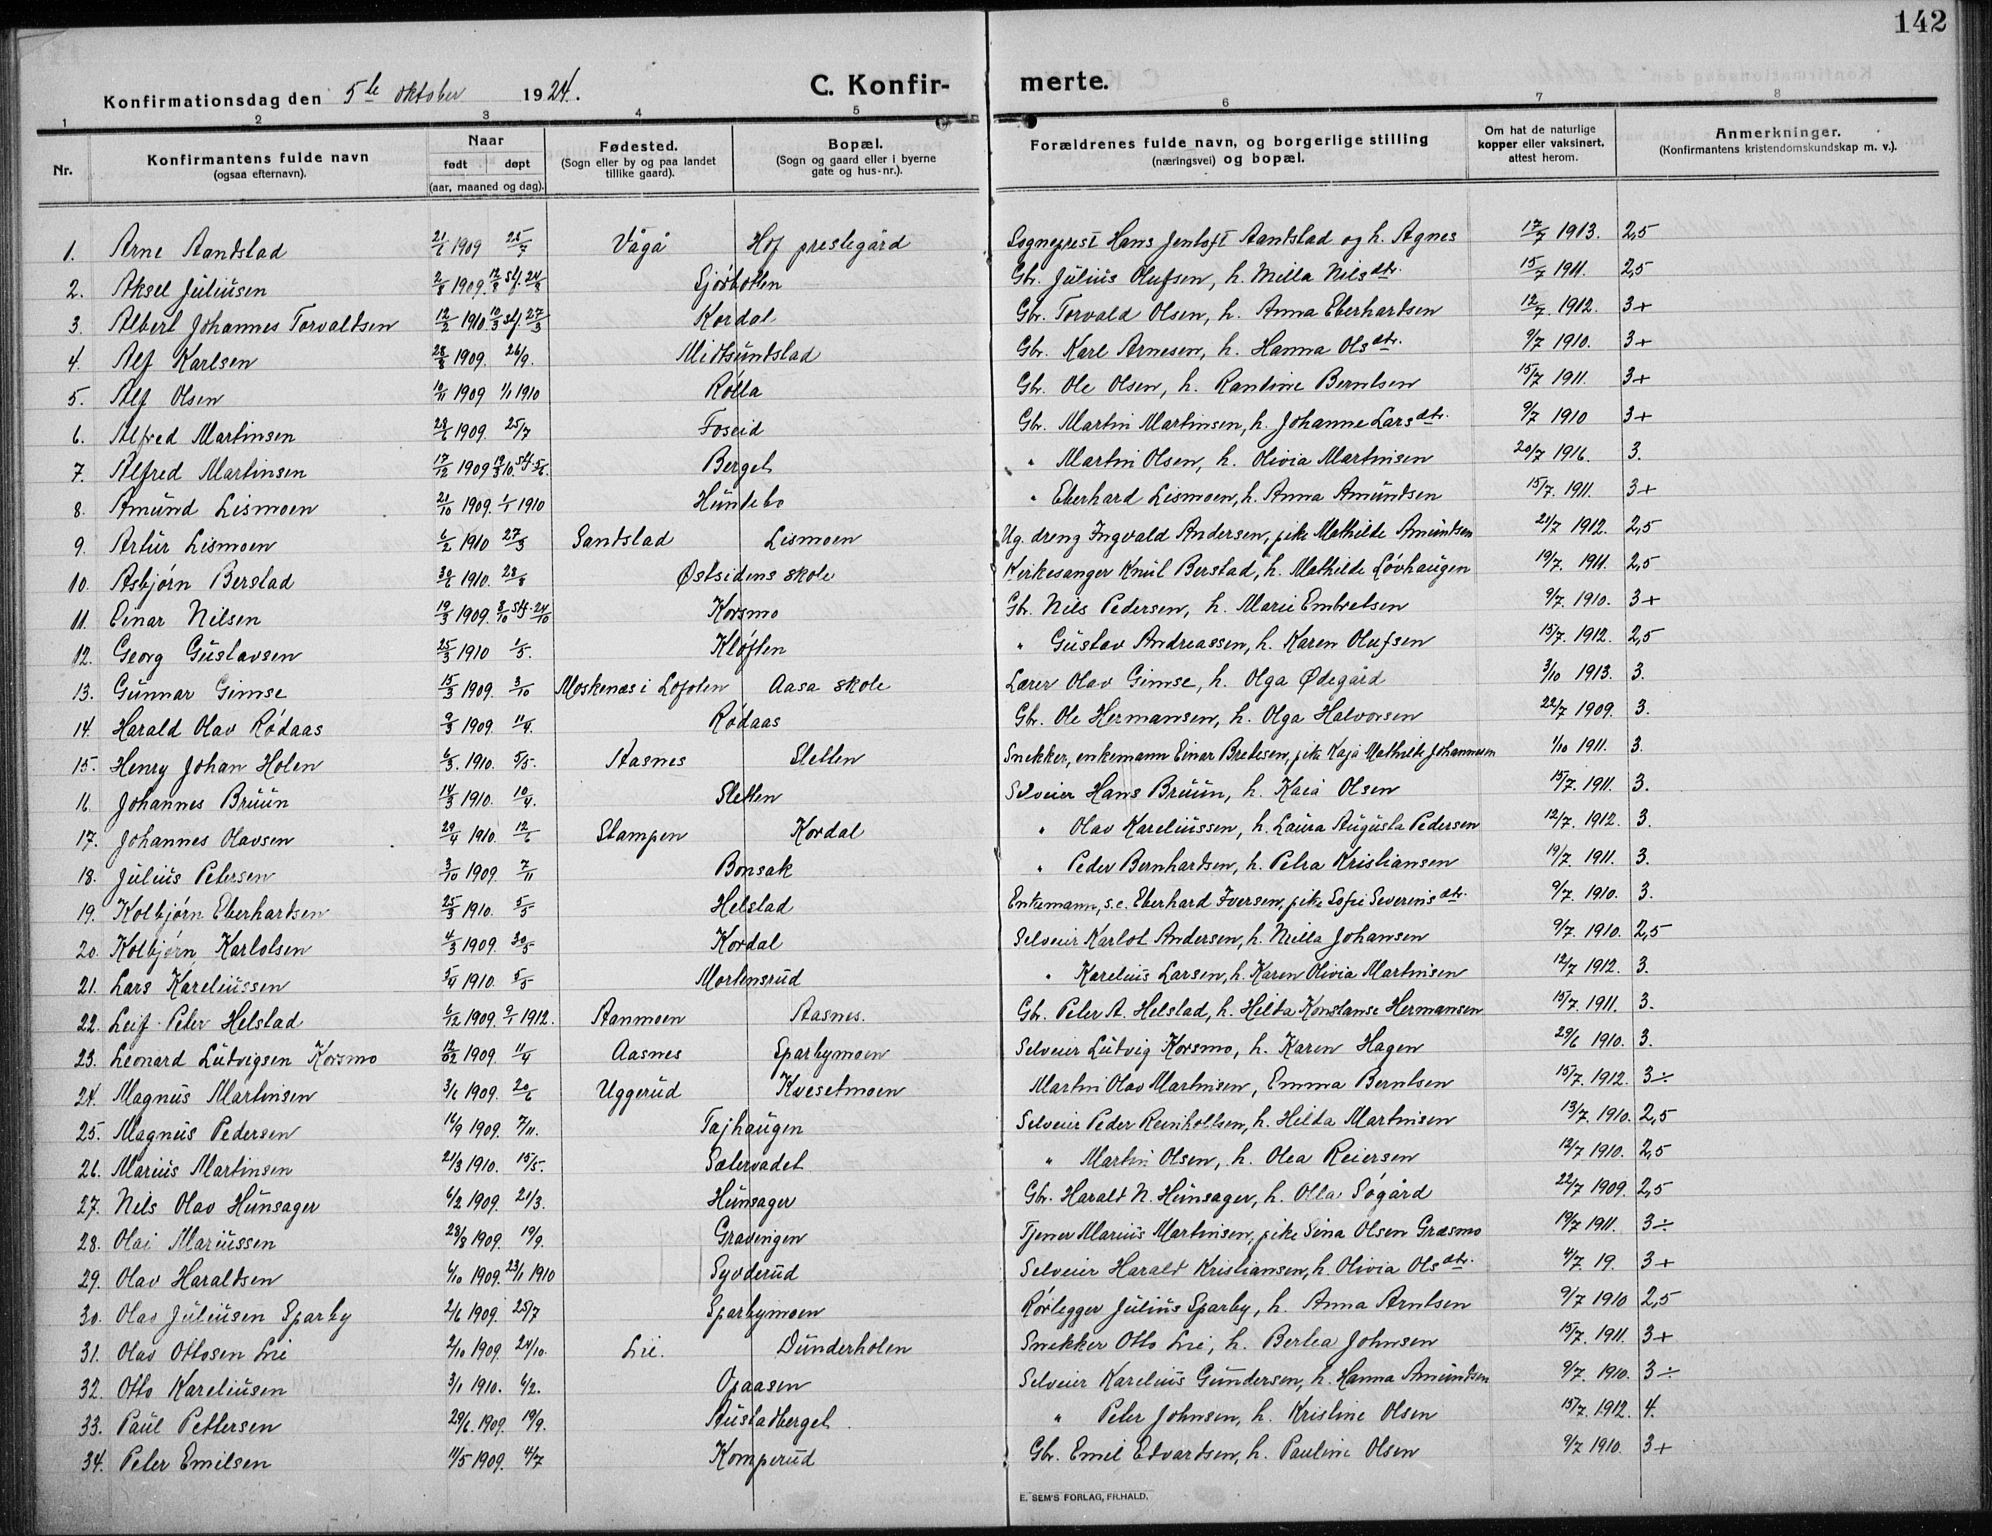 142
Konfirmationsdag den 5te oktober 1924.
C. Konfir- merte.
1 2 3 4 5 6 7 8
Nr. Konfirmantens fulde navn (ogsaa efternavn). Naar født døpt (aar, maaned og dag). Fødested. (Sogn eller by og paa landet tillike gaard). Bopæl. (Sogn og gaard eller i byerne gate og hus-nr.). Forældrenes fulde navn, og borgerlige stilling (næringsvei) og bopæl. Om hat de naturlige kopper eller vaksinert, attest herom. Anmerkninger. (Konfirmantens kristendomskundskap m. v.).
1. Arne Aandstad 21/6 1909 25/7 Vågå Hof prestegård Sogneprest Hans Jentoft Aandstad og h. Agnes 17/7 1913. 2,5
2. Aksel Juliusen 2/8 1909. 12/9 stf. 24/9 Sjøbotten Gbr. Julius Olufsen, h. Milla Nilsdtr. 15/7 1911. 2,5
3. Albert Johannes Torvaldsen 12/2 1910. 10/3 stf. 27/3 Kordal Gbr. Torvald Olsen, h. Anna Eberhardsen 12/7 1912. 3+
4. Alf Karlsen 28/8 1909. 26/9. Midtsundstad Gbr. Karl Arnesen, h. Hanna Olsdtr. 9/7 1910. 3+
5. Alf Olsen 10/11 1909 1/1 1910 Rølla Gbr. Ole Olsen, h. Randine Berntsen 15/7 1911. 3+
6. Alfred Martinsen 28/6 1909. 25/7 Foseid Gbr. Martin Martinsen, h. Johanne Larsdtr. 9/7 1910 3+
7. Alfred Martinsen 17/12 1909 19/3 10 stf. 5/6. Berget " Martin Olsen, h. Olivia Martinsen 20/7 1916. 3.
8. Amund Lismoen 21/10 1909. 1/1 1910 Hundebo " Eberhard Lismoen, h. Anna Amundsen 15/7. 1911. 3+
9. Artur Lismoen 6/2 1910 27/3 Sandstad Lismoen Ug. dreng Ingvald Andersen, pike Mathilde Amundsen 21/7 1912. 2,5
10. Asbjørn Berstad 30/6 1910. 28/8 Østsidens skole Kirkesanger Knut Berstad, h. Mathilde Løvhaugen 19/7. 1911. 2,5
11. Einar Nilsen 19/9 1909. 3/10 stf. 24/10 Korsmo Gbr. Nils Pedersen, h. Marie Embretsen 9/7. 1910. 3+
12. Georg Gustavsen 25/3 1910 1/5. Kløften " Gustav Andreassen, h. Karen Olufsen 15/7. 1912. 2,5
13. Gunnar Gimse 15/3 1909. 3/10 Moskenæs i Lofoten Aasa skole Lærer Olav Gimse, h. Olga Ødegård 3/10 1913. 3.
14. Harald Olav Rødaas 9/3 1909. 11/4. Rødaas Gbr. Ole Hermansen, h. Olga Halvorsen 22/7 1909. 3.
15. Henry Johan Holen 6/3. 1910. 5/5. Aasnes Sletten Snekker, enkemann Einar Bredesen, pike Kaja Mathilde Johannesen 1/10 1911. 3.
16. Johannes Bruun 14/3 1910. 10/4. Sletten Selveier Hans Bruun, h. Kaia Olsen 15/7. 1911. 3.
17. Johannes Olavsen 29/4 1910. 12/6 Stampen Kordal " Olav Kareliussen, h. Laura Augusta Pedersen 12/7. 1912. 3.
18. Julius Petersen 3/10 1909. 7/11 Bonsak " Peder Bernhardsen, h. Petra Kristiansen 19/7. 1911. 3.
19. Kolbjørn Eberhardsen 25/3 1910. 5/5 Helstad Enkemann, s.e. Eberhard Iversen, pike Sofie Severinsdtr. 9/7. 1910. 3.
20. Kolbjørn Karlotsen 4/3 1909. 30/5 Kordal Selveier Karlot Andersen, h. Milla Johansen 9/7. 1910. 2,5
21. Lars Kareliussen 5/4 1910. 5/5 Mortensrud " Karelius Larsen, h. Karen Olivia Martinsen 12/7 1912. 3.
22. Leif Peter Helstad 6/12 1909. 9/1 1912. Aanmoen Aasnes. Gbr. Peter A. Helstad, h. Hilda Konstanse Hermansen 15/7. 1911. 3.
23. Leonard Ludvigsen Korsmo 12/02 1909. 11/4 Aasnes Sparbymoen Selveier Ludvig Korsmo, h. Karen Hagen 29/6 1910. 3.
24. Magnus Martinsen 3/6 1909. 20/6 Uggerud Kvesetmoen Martin Olav Martinsen, Emma Berntsen 15/7. 1912. 3÷
25. Magnus Pedersen 16/9 1909. 7/11. Tajhaugen Selveier Peder Reinholtsen, h. Hilda Martinsen 13/7. 1910. 2,5
26. Marius Martinsen 21/3 1910. 15/5. Sætervadet " Martin Olsen, h. Olea Reiersen 12/7 1910. 2,5
27. Nils Olav Hunsager 6/2 1909. 21/3. Hunsager Gbr. Harald N. Hunsager, h. Olla Søgård 22/7 1909. 2,5
28. Olai Mariussen 28/8 1909. 19/9. Gravingen Tjener Marius Martinsen, pike Sina Olsen Græsmo 19/7 1911. 3÷
29. Olav Haraldsen 6/10 1909. 23/1 1910 Syvderud Selveier Harald Kristiansen, h. Olivia Olsdtr. 4/7 19. 3+
30. Olav Juliusen Sparby 2/6 1909. 25/7 Sparbymoen Rørlegger Julius Sparby, h. Anna Arntsen 9/7 1910 2,5
31. Olav Ottosen Lie 2/10 1909. 24/10. Lie. Dunderholen Snekker Otto Lie, h. Bertea Johnsen 15/7. 1911. 3+
32. Otto Kareliusen 3/1 1910. 6/2. Opaasen Selveier Karelius Gundersen, h. Hanna Amundsen 9/7. 1910. 3÷
33. Paul Pettersen 29/6. 1909. 19/9. Austadberget " Peter Johnsen, h. Kristine Olsen 15/7. 1912. 4.
34. Peter Emilsen 11/5 1909. 4/7 Komperud Gbr. Emil Edvardsen, h. Pauline Olsen 9/7 1910. 3+
E. SEM'S FORLAG, FR.HALD.